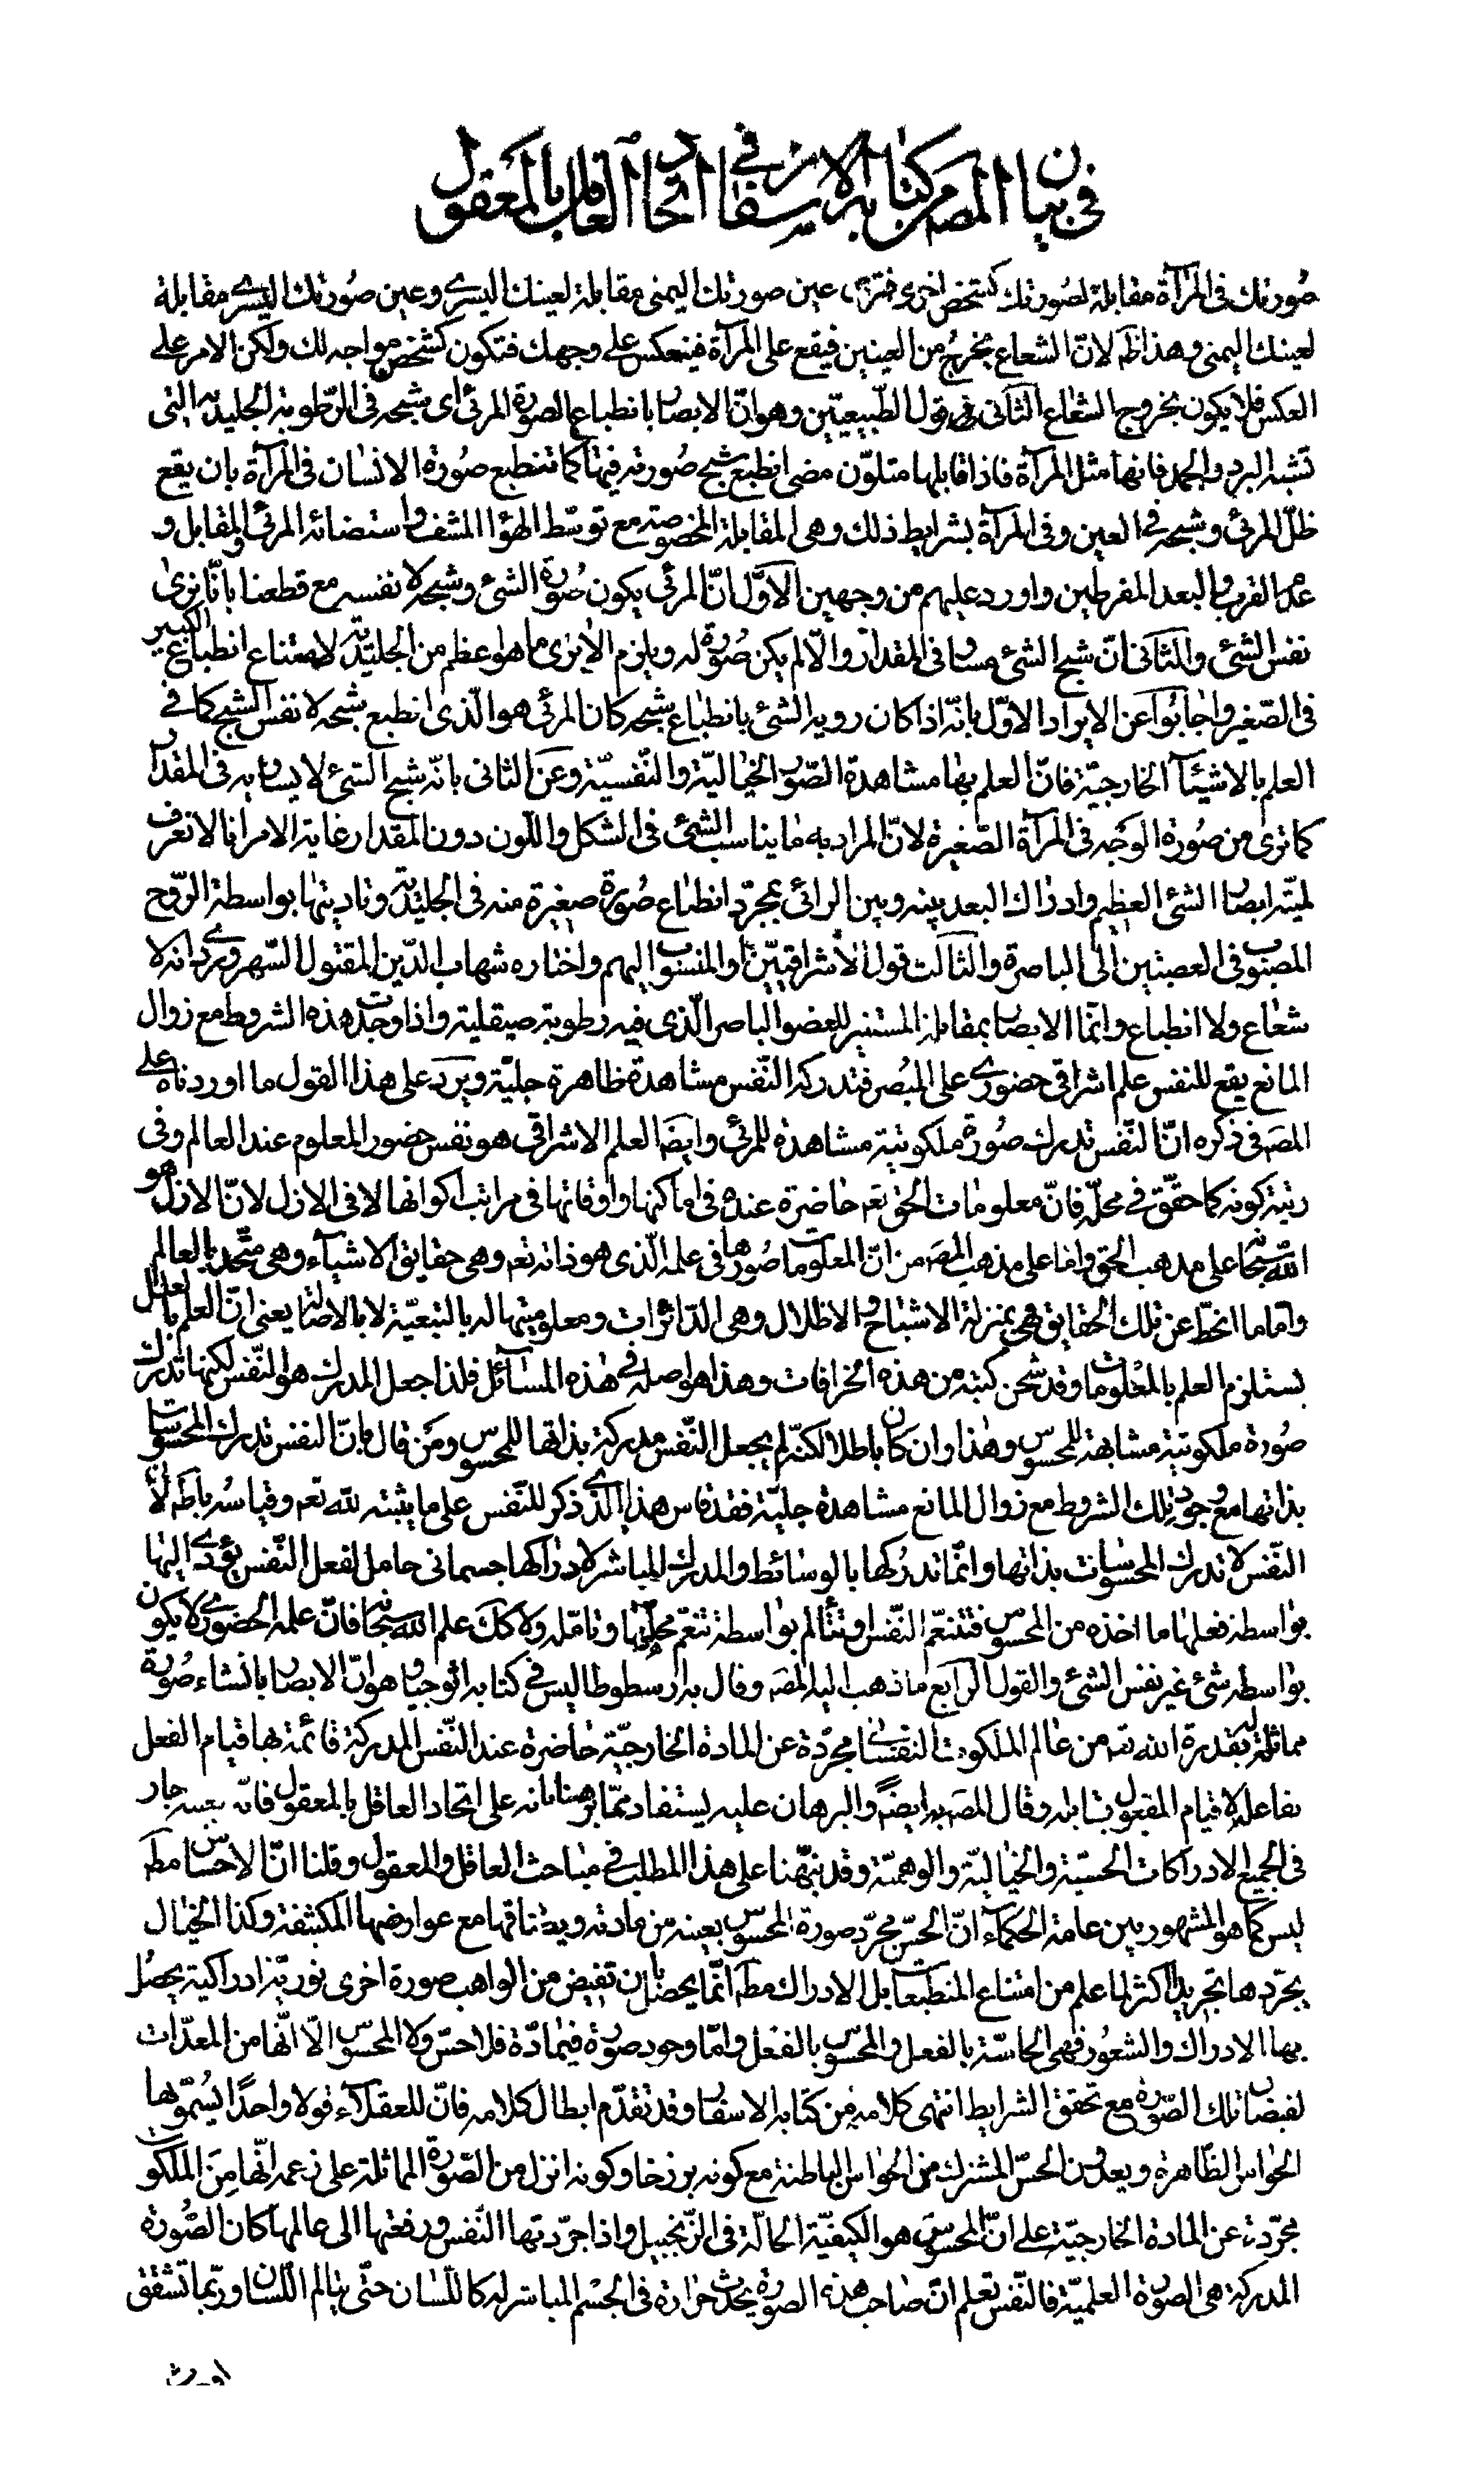 في بيان المصـ من كتابه الاسفار في اتحاد العاقل بالمعقول
صورتك في المرآة مقابلة لصورتك كشخص اخرى فترى عين صورتك اليمنى مقابلة لعينك اليسرى وعين صورتك اليسرى مقابلة
لعينك اليمنى وهذا ظهر لانّ الشعاع يخرج من العينين فيقع على المرآة فينعكس على وجهك فتكون كشخص مواجه لك ولكن الامر على
العكس فلا يكون بخروج الشعاع الثاني قول الطّبيعيّين وهو انّ الابصار بانطباع الصورة المرئي اي شبحه في الرّطوبة الجليديّة التي
تشبه البرد والجمد فانها مثل المرآة فاذا قابلها متلوّن مضي انطبع شبح صورته فيها كما تنطبع صورة الانسان في المرآة بان يقع
ظلّ المرئي وشبحه في العين وفي المرآة بشرايط ذلك وهي المقابلة المخصوصة مع توسّط الهواء المشف واستضائة المرئي المقابل و
عدم القرب والبعد المفرطين واورد عليهم من وجهين الاوّل انّ المرئي يكون صورة الشئ وشبحه لا نفسه مع قطعنا بانّا نرى
نفس الشئ والثاني انّ شبح الشئ مساو في المقدار والّا لم يكن صورة له ويلزم الا يرى ما هو اعظم من الجليديّة لامتناع انطباع الكبير
في الصّغير واجابوا عن الايراد الاوّل بانّه اذا كان روية الشئ بانطباع شبحه كان المرئي هو الّذي انطبع شبحه لا نفس الشبح كما في
العلم بالاشياء الخارجيّة فانّ العلم بها مشاهدة الصّور الخياليّة والنّفسيّة وعن الثاني بانّه شبح الشئ لا يساويه في المقدار
كما ترى من صورة الوجه في المرآة الصّغيرة لانّ المراد به ما يناسب الشئ في الشكل واللّون دون المقدار غاية الامر انا لا نعرف
لميّة ابصار الشئ العظيم وادراك البعد بينه وبين الرائي بمجرّد انطباع صورة صغيرة منه في الجليديّة وتاديتها بواسطة الرّوح
المصبوب في العصبتين الى الباصرة والثالث قول الاشراقيّين والمنسوب اليهم واختاره شهاب الدّين المقتول السّهروردي انه لا
شعاع ولا انطباع وانّما الابصار بمقابلة المستنير للعضو الباصر الّذي فيه رطوبة صيقلية واذا وجدت هذه الشروط مع زوال
المانع يقع للنفس علم اشراقي حضوري على المبصر فتدركه النّفس مشاهدة ظاهرة جليّة ويرد على هذا القول ما اوردناه على
المصـ في ذكره انّ النّفس تدرك صورة ملكوتية مشاهدة للمرئي وايضا العلم الاشراقي هو نفس حضور المعلوم عند العالم وفي
رتبة كونه كما حقّق في محلّه فانّ معلومات الحق تعـ حاضرة عنده في اماكنها واوقاتها في مراتب اكوانها لا في الازل لانّ الازل هو
الله سبحانه على مذهب الحق واما على مذهب المصـ من انّ المعلومات صورها في علمه الّذي هو ذاته تعـ وهي حقايق الاشياء وهي متّحدة بالعالم
وامّا ما انحطّ عن تلك الحقايق فهي بمنزلة الاشباح والاظلال وهي الدّاثرات ومعلوميتها له بالتبعيّة لا بالاصالة يعني انّ العلم بالعلل
يستلزم العلم بالمعلولات وقد شحن كتبه من هذه الخرافات وهذا هو اصله في هذه المسائل فلذا جعل المدرك هو النّفس لكنها تدرك
صورة ملكوتية مشابهة للمحسوس وهذا وان كان باطلا لكنّه لم يجعل النّفس مدركة بذاتها للمحسوس ومن قال بانّ النفس تدرك المحسوسات
بذاتها مع وجود تلك الشروط مع زوال المانع مشاهدة جليّة فقد قاس هذا الّذي ذكر للنّفس على ما يثبته لله تعـ وقياسه باطل لانّ
النّفس لا تدرك المحسوسات بذاتها وانّما تدركها بالوسائط والمدرك المباشر لادراكها جسماني حامل لفعل النّفس يؤدّي اليها
بواسطة فعلها ما اخذه من المحسوس فتتنعّم النّفس او تتألم بواسطة تنعّم محلّها وتامّله ولا كك علم الله سبحانه فانّ علمه الحضوري لا يكون
بواسطة شئ غير نفس الشئ والقول الرّابع ما ذهب اليه المصـ وقال به ارسطوطاليس في كتابه اثولوجيا وهو انّ الابصار بانشاء صورة
مماثلة له بقدرة الله تعـ من عالم الملكوت النفساني مجرّدة عن المادة الخارجيّة حاضرة عند النّفس المدركة قائمة بها قيام الفعل
بفاعله لا قيام المقبول بقابله وقال المصـ به ايضا والبرهان عليه يستفاد ممّا برهنّا به على اتحاد العاقل بالمعقول فانّه بعينه جار
في الجميع الادراكات الحسيّة والخياليّة والوهميّة وقد نبّهنا على هذا المطلب في مباحث العاقل والمعقول وقلنا انّ الاحساس مطـ
ليس كما هو المشهور بين عامة الحكماء انّ الحسّ مجرّد صورة المحسوس بعينه من مادته ويصادقها مع عوارضها المكتنفة وكذا الخيال
يجرّدها تجريدا اكثر لما علم من امتناع المنطبعات بل الادراك مطـ انّما يحصل بان تفيض من الواهب صورة اخرى نوريّة ادراكية يحصل
بها الادراك والشعور فهي الحاسّة بالفعل والمحسوس بالفعل وامّا وجود صورة في مادّة فلا حسّ ولا محسوس الّا انّها من المعدّات
لفيضان تلك الصّورة مع تحقق الشرايط انتهى كلامه من كتابه الاسفار وقد تقدّم ابطال كلامه فانّ للعقلاء قولا واحدا يسمّونها
الحواس الظّاهرة ويعدّون الحسّ المشترك من الحواس الباطنة مع كونه برزخا وكونه انزل من الصّورة المماثلة على زعمه انّها من الملكوت
مجرّدة عن المادة الخارجيّة على انّ المحسوس هو الكيفيّة الحالّة في الزّنجبيل واذا جرّدتها النّفس ورفعتها الى عالمها كان الصّورة
المدركة هي الصورة العلميّة فالنّفس تعلم انّ صاحب هذه الصورة يحدث حرارة في الجسم المباشر له كاللّسان حتّى يتالم اللّسان وربّما تشقق